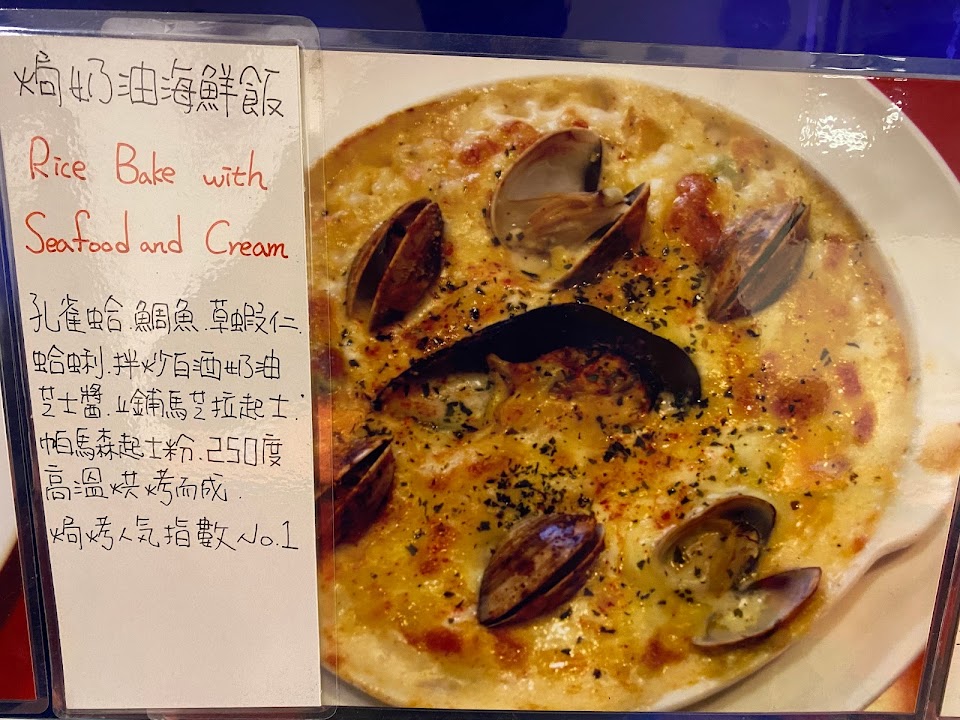 焗奶油海鮮飯
Rice Bake with
Seafood and Cream
孔雀蛤.鯛魚.草蝦仁.
蛤蜊.拌炒白酒奶油
芝士醬.上鋪馬芝拉起士.
帕馬森起士粉.250度
高溫烘烤而成.
焗烤人気指數No.1